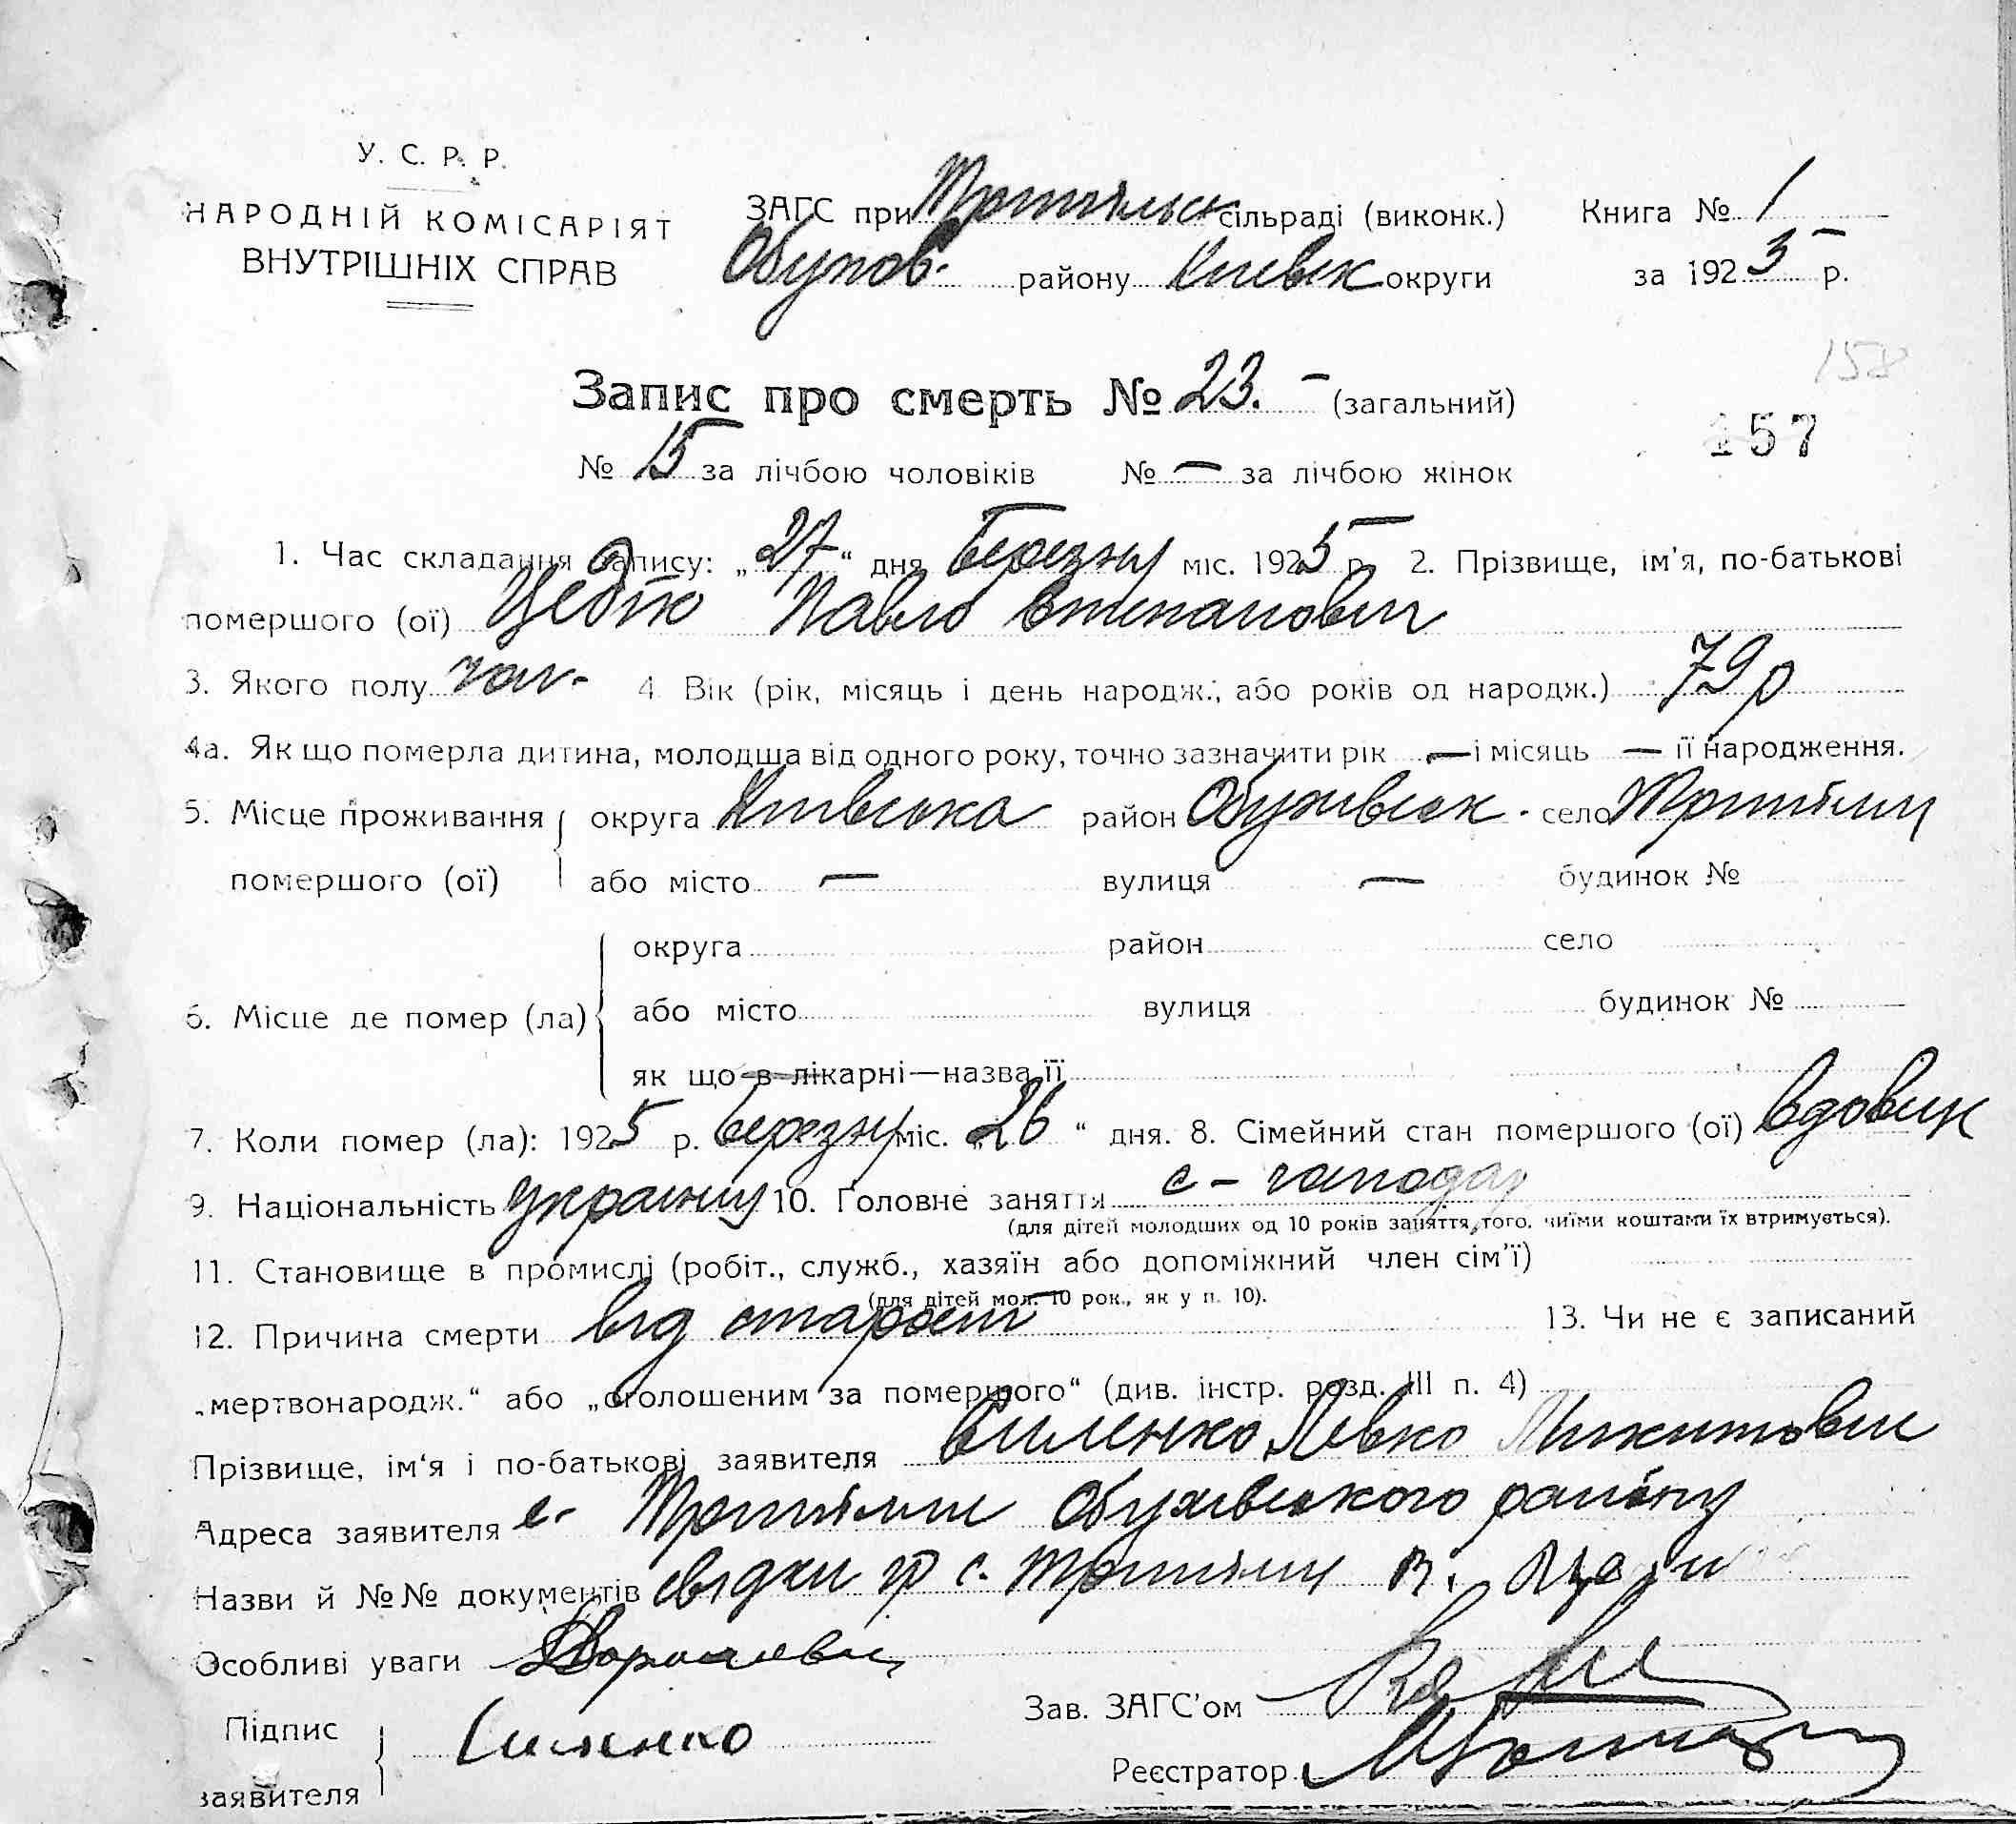 У. С. Р. Р.
НАРОДНІЙ КОМІСАРІЯТ
ВНУТРІШНІХ СПРАВ
ЗАГС при Трипільск сільраді (виконк.) Книга № 1
Обухов. району Київск округи за 1925 р.
158
Запис про смерть № 23. (загальний)
157
№ 15 за лічбою чоловіків № — за лічбою жінок
1. Час складання запису: „27“ дня березня міс. 1925 р. 2. Прізвище, ім'я, по-батькові
помершого (ої) Павло Степанович
3. Якого полу чол. 4 Вік (рік, місяць і день народж., або років од народж.) 79 р
4а. Як що померла дитина, молодша від одного року, точно зазначити рік — і місяць — її народження.
5. Місце проживання округа Київська район Обухівськ. село Трипілля
помершого (ої) або місто — вулиця — будинок №
округа район село
6. Місце де помер (ла) або місто вулиця будинок №
як що в лікарні—назва її
7. Коли помер (ла): 1925 р. березня міс. „26“ дня. 8. Сімейний стан помершого (ої) вдовик
9. Національність 10. Головне заняття с-господар
(для дітей молодших од 10 років заняття того, чиїми коштами їх втримується).
11. Становище в промислі (робіт., служб., хазяїн або допоміжний член сім'ї)
(для дітей мол. 10 рок., як у п. 10).
12. Причина смерти від старости 13. Чи не є записаний
„мертвонародж.“ або „оголошеним за помершого“ (див. інстр. розд. III п. 4)
Прізвище, ім'я і по-батькові заявителя Силенко Левко Микитович
Адреса заявителя с. Трипілля Обухівського району
Назви й №№ документів свідки гр с. Трипілля
Особливі уваги
Підпис Зав. ЗАГС'ом
заявителя Силенко
Реєстратор